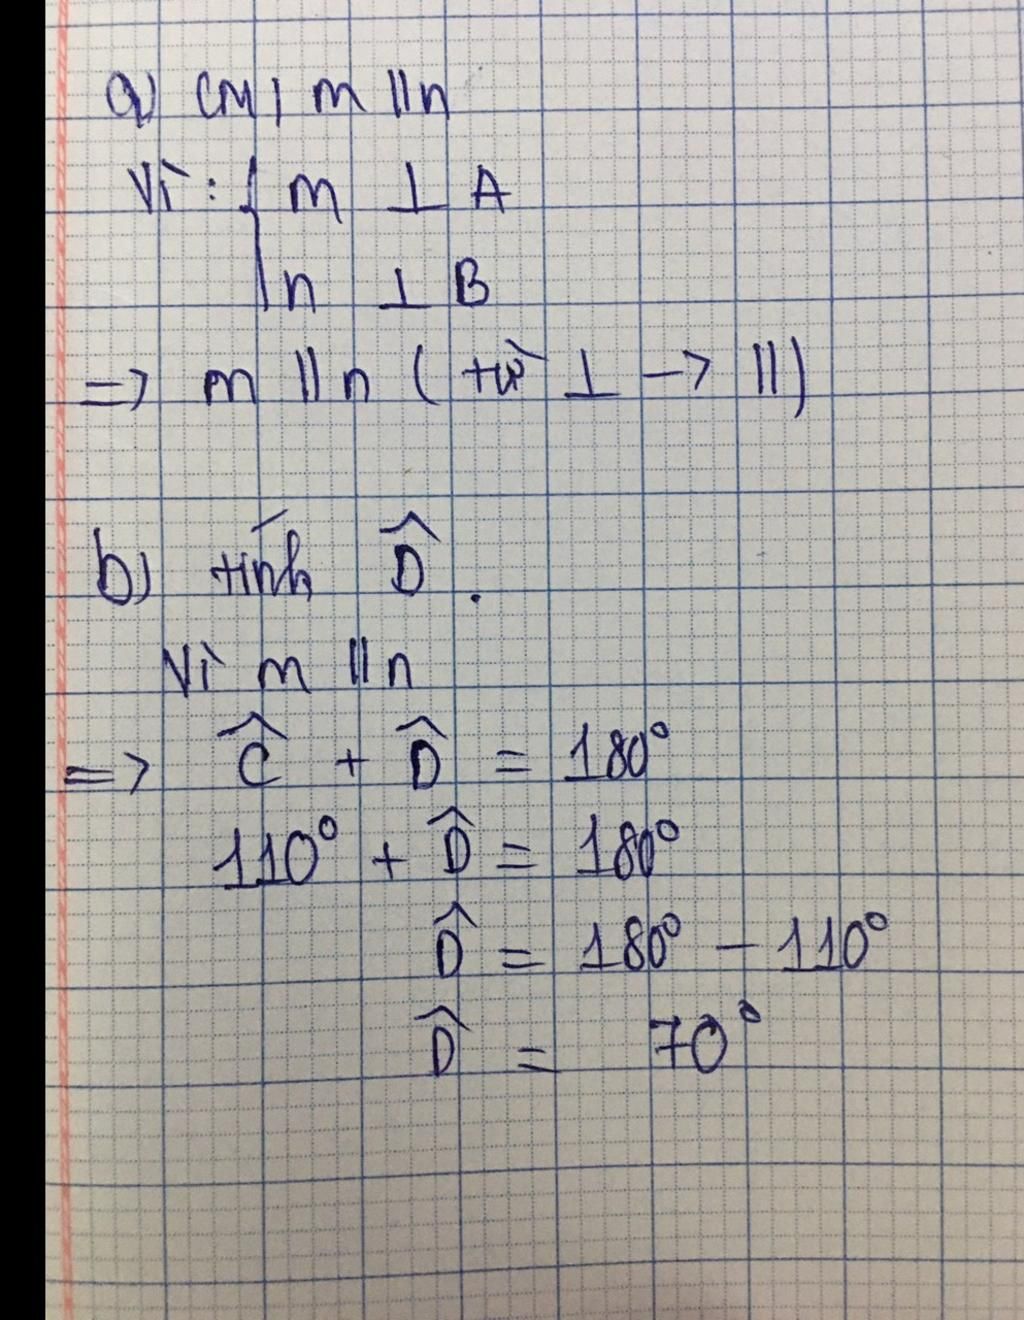 a) CM, m // n
Vì : { m ⊥ A
n ⊥ B
=> m // n ( từ ⊥ -> // )
b) tính D̂ .
Vì m // n
=> Ĉ + D̂ = 180°
110° + D̂ = 180°
D̂ = 180° - 110°
D̂ = 70°